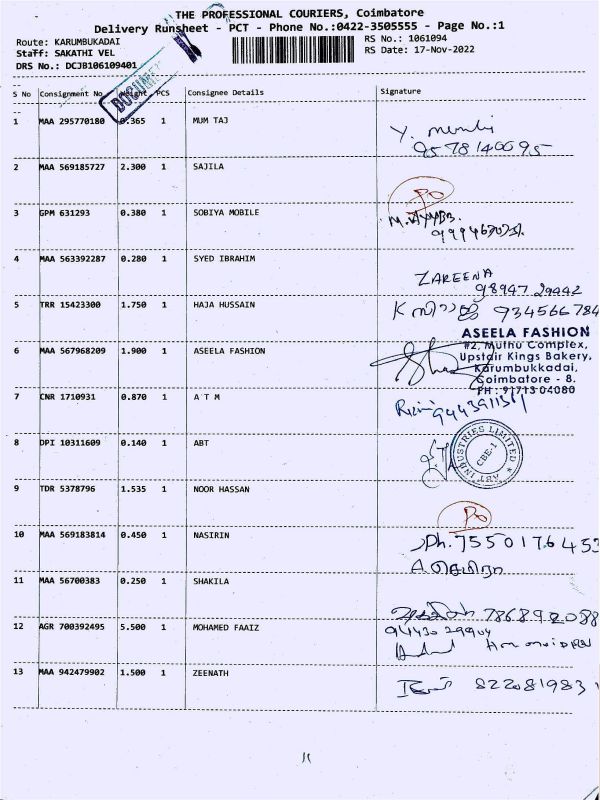 THE PROFESSIONAL COURIERS, Coimbatore
Delivery Runsheet - PCT - Phone No.:0422-3505555 - Page No.:1
Route: KARUMBUKADAI
RS No.: 1061094
Staff: SAKATHI VEL
RS Date: 17-Nov-2022
DRS No.: DCJB106109401
DOCUMENT
S No Consignment No. Weight PCS Consignee Details Signature
1 MAA 295770180 0.365 1 MUM TAJ
9578140095
2 MAA 569185727 2.300 1 SAJILA
3 GPM 631293 0.380 1 SOBIYA MOBILE
4 MAA 563392287 0.280 1 SYED IBRAHIM
ZAREENA
98947 29442
5 TRR 15423300 1.750 1 HAJA HUSSAIN
934566784
ASEELA FASHION
#2, Muthu Complex,
6 MAA 567968209 1.900 1 ASEELA FASHION
Upstair Kings Bakery,
Karumbukkadai,
Coimbatore - 8.
PH : 91713 04080
7 CNR 1710931 0.870 1 A T M
8 DPI 10311609 0.140 1 ABT
ABT INDUSTRIES LIMITED
CBE-1
9 TDR 5378796 1.535 1 NOOR HASSAN
10 MAA 569183814 0.450 1 NASIRIN
Ph. 7550176453
11 MAA 56700383 0.250 1 SHAKILA
786892088
12 AGR 700392495 5.500 1 MOHAMED FAAIZ
94430 29904
13 MAA 942479902 1.500 1 ZEENATH
822081983